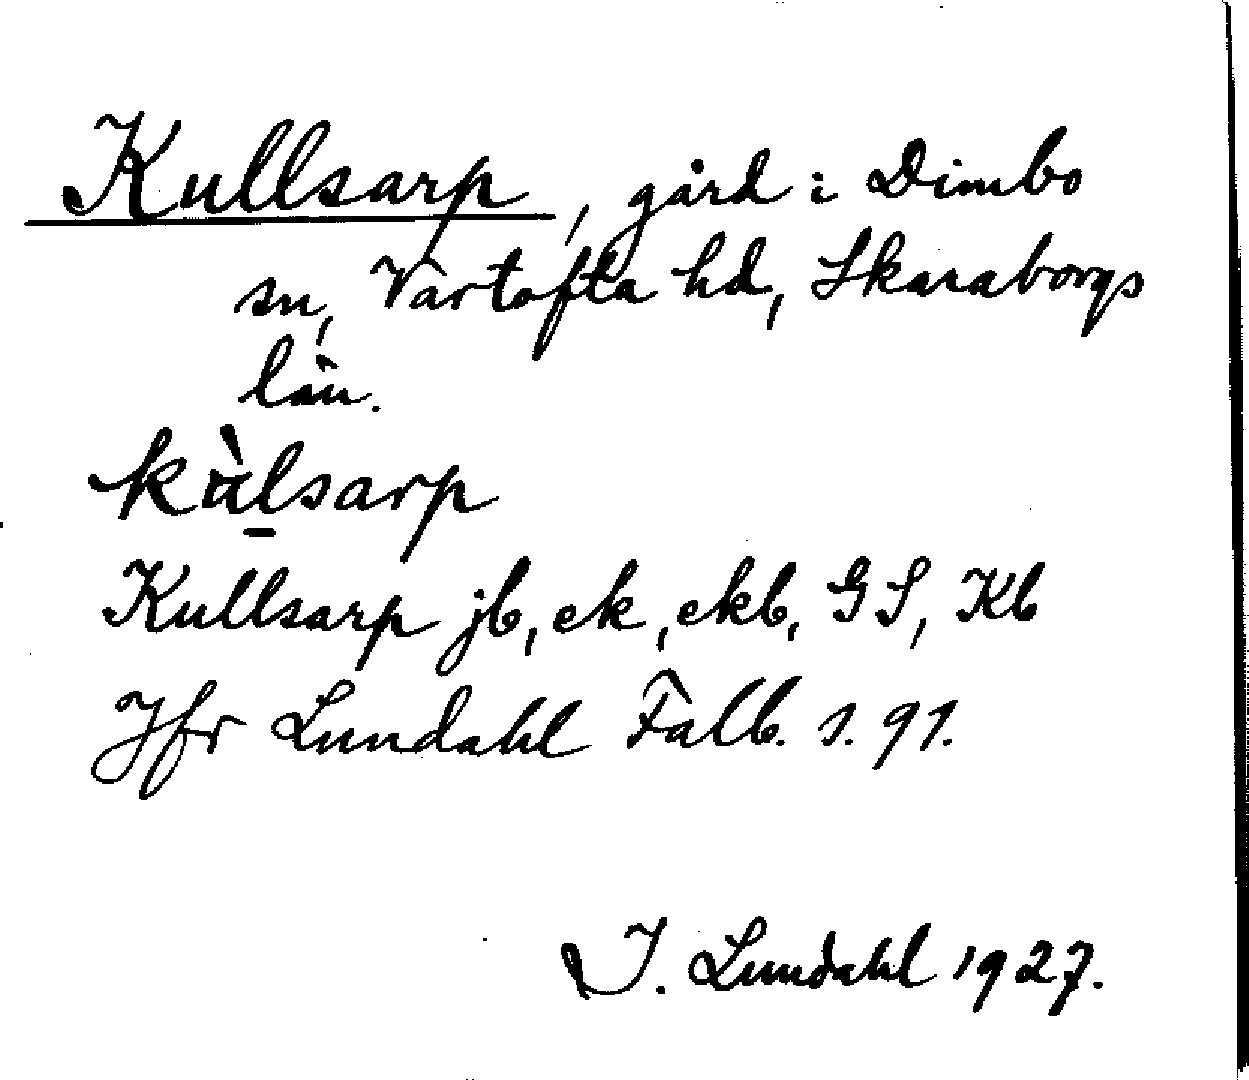 Kullsarp, gård i Dimbo
sn, Vartofta hd, Skaraborgs
län.
kùl̠sarp
Kullsarp jb, ek, ekb, GS, Kb
Jfr Lundahl Falb. s. 91.
I. Lundahl 1927.